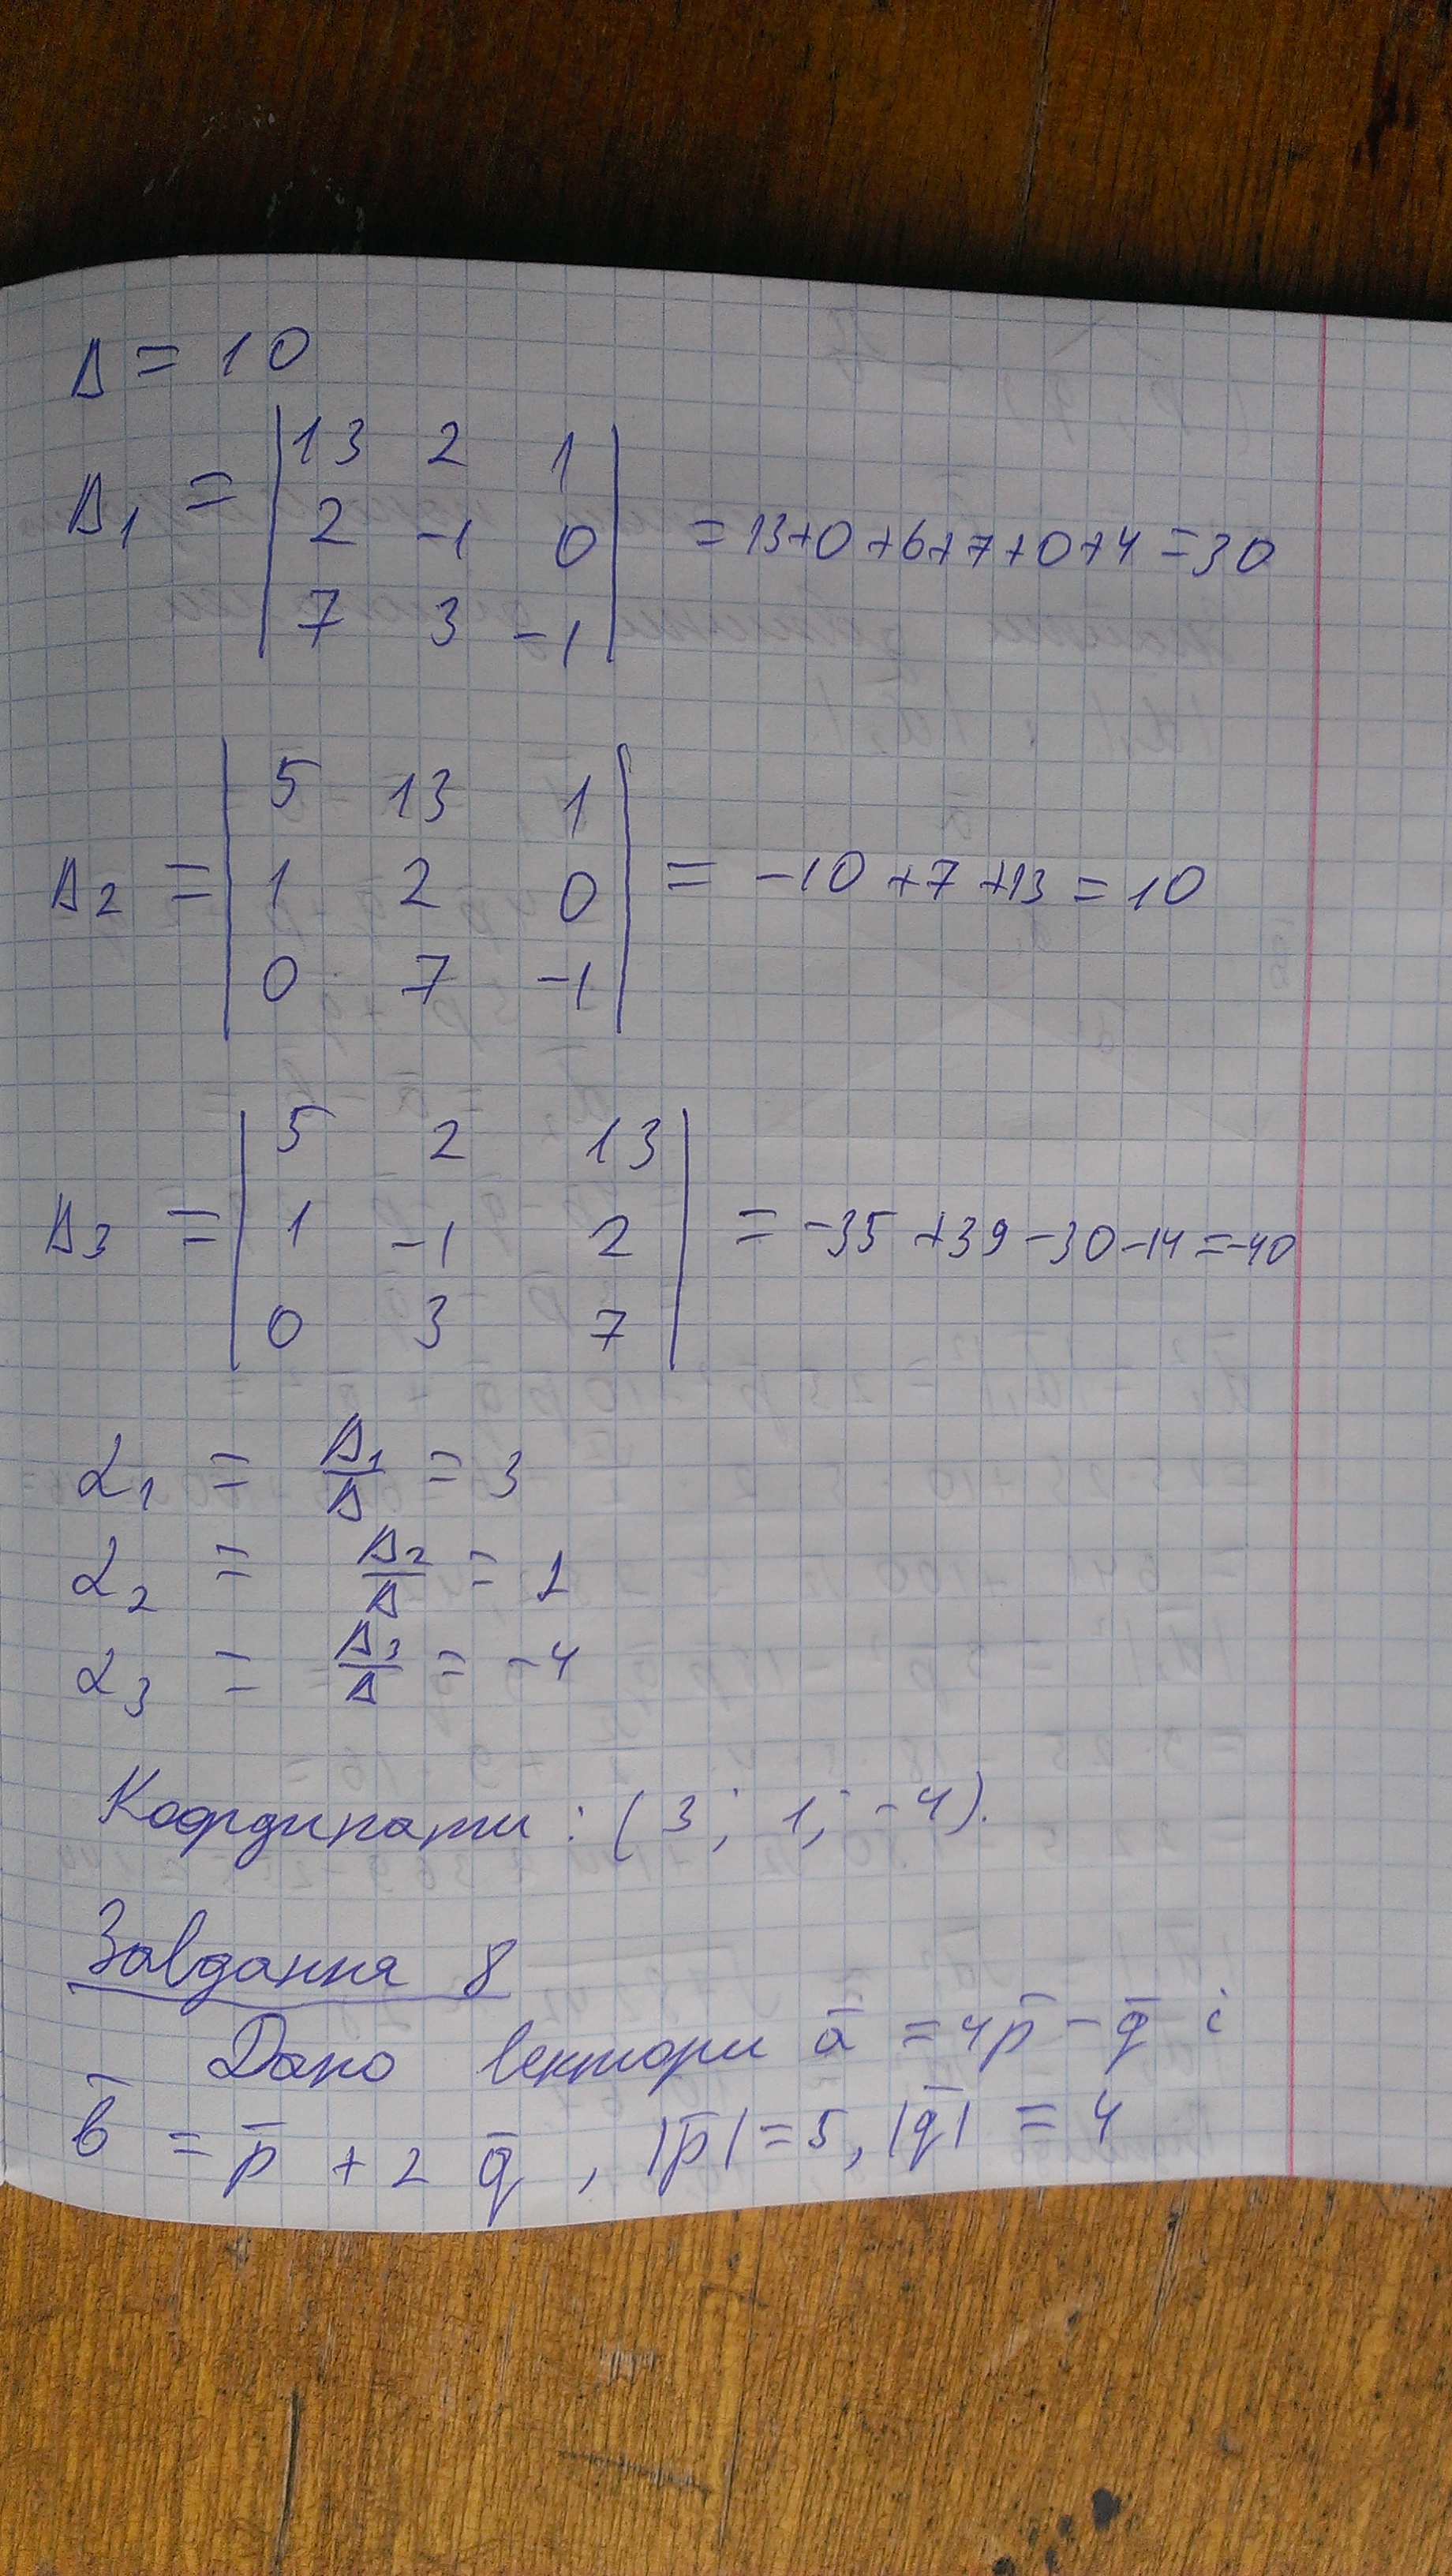 Δ = 10
Δ1 = | 13 2 1 |
| 2 -1 0 | = 13+0+6+7+0+4=30
| 7 3 -1 |
| 5 13 1 |
Δ2 = | 1 2 0 | = -10+7+13=10
| 0 7 -1 |
| 5 2 13 |
Δ3 = | 1 -1 2 | = -35+39-30-14=-40
| 0 3 7 |
α1 = Δ1/Δ = 3
α2 = Δ2/Δ = 1
α3 = Δ3/Δ = -4
Координати: (3; 1; -4).
Завдання 8
Дано вектори a̅ = 4p̅ - q̅ і
b̅ = p̅ + 2 q̅, |p̅| = 5, |q̅| = 4